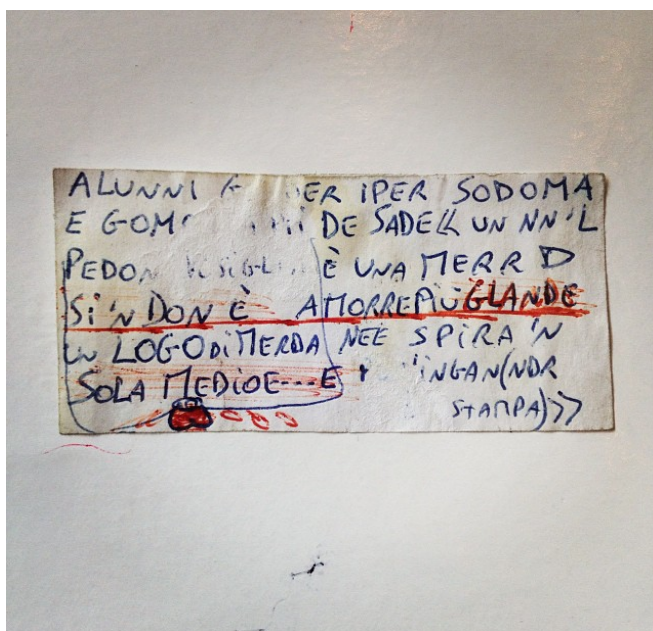 ALUNNI ER IPER SODOMA
E GOM DE SADE UN NN'L
PEDON È UNA MERR D
Si'N DON È AMORREPIÙGLANDE
UN LOGO DI MERDA NEE SPIRA 'N
SOLA MEDIOE---E 'NGAN(NDR
STAMPA)>>